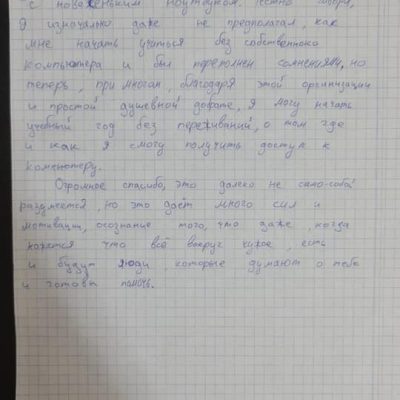 с новеньким ноутбуком. Честно говоря,
я изначально даже не предполагал, как
мне начать учиться без собственного
компьютера и был переполнен сомнениями, но
теперь, при многом, благодаря этой организации
и простой душевной доброте, я могу начать
учебный год без переживаний, о том где
и как я смогу получить доступ к
компютеру.
Огромное спасибо, это далеко не само-собой
разумеется, но это даёт много сил и
мотивации, осознание того, что даже, когда
кажется что всё вокруг чужое, есть
и будут люди, которые думают о тебе
и готовы помочь.